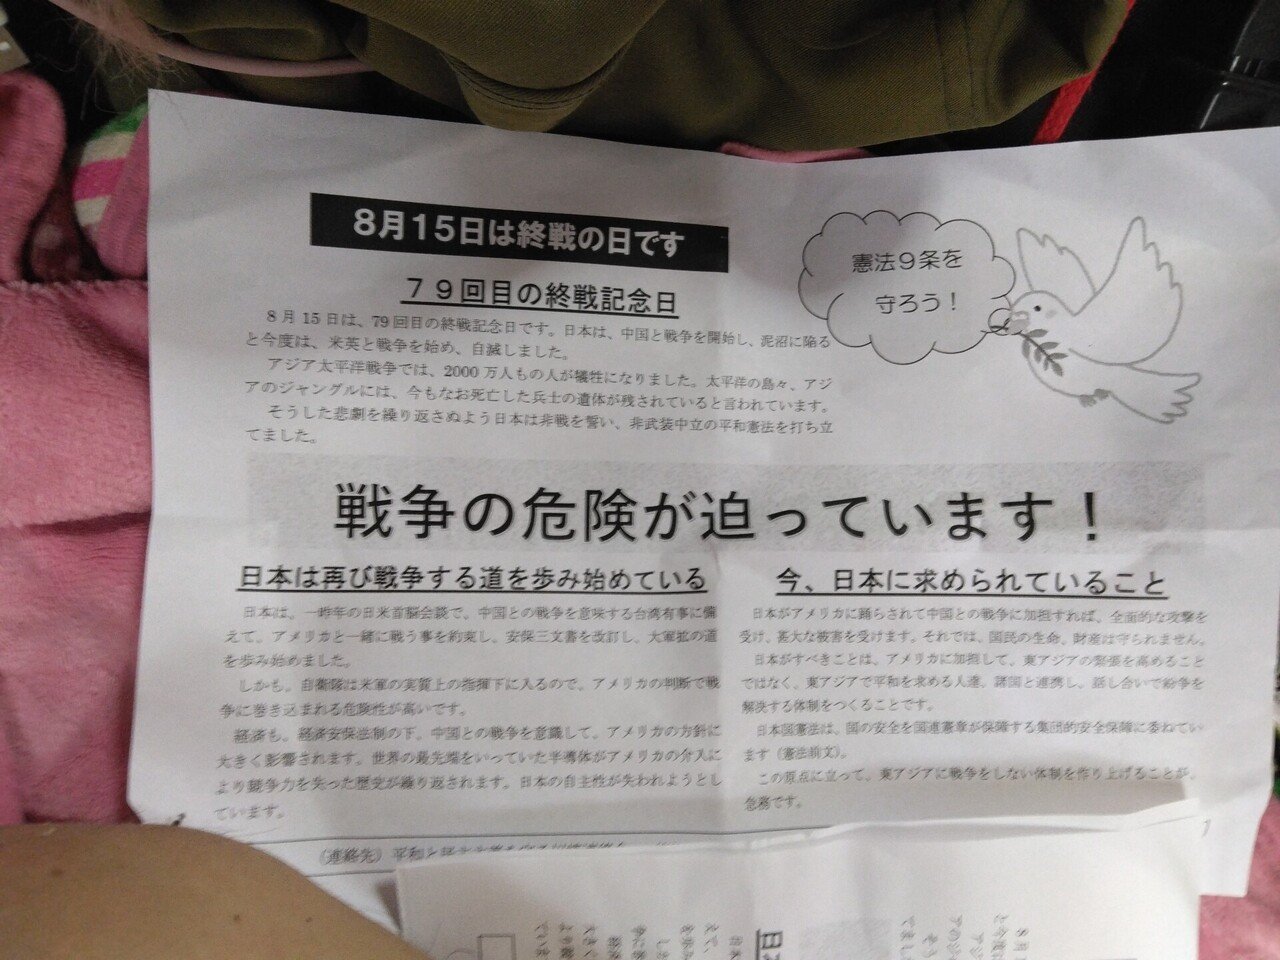 8月15日は終戦の日です
憲法９条を
守ろう！
７９回目の終戦記念日
8月15日は、79回目の終戦記念日です。日本は、中国と戦争を開始し、泥沼に陥る
と今度は、米英と戦争を始め、自滅しました。
アジア太平洋戦争では、2000万人もの人が犠牲になりました。太平洋の島々、アジ
アのジャングルには、今もなお死亡した兵士の遺体が残されていると言われています。
そうした悲劇を繰り返さぬよう日本は非戦を誓い、非武装中立の平和憲法を打ち立
てました。
戦争の危険が迫っています！
日本は再び戦争する道を歩み始めている
日本は、一昨年の日米首脳会談で、中国との戦争を意味する台湾有事に備
えて、アメリカと一緒に戦う事を約束し、安保三文書を改訂し、大軍拡の道
を歩み始めました。
しかも、自衛隊は米軍の実質上の指揮下に入るので、アメリカの判断で戦
争に巻き込まれる危険性が高いです。
経済も、経済安保法制の下、中国との戦争を意識して、アメリカの方針に
大きく影響されます。世界の最先端をいっていた半導体がアメリカの介入に
より競争力を失った歴史が繰り返されます。日本の自主性が失われようとし
ています。
今、日本に求められていること
日本がアメリカに踊らされて中国との戦争に加担すれば、全面的な攻撃を
受け、甚大な被害を受けます。それでは、国民の生命、財産は守られません。
日本がすべきことは、アメリカに加担して、東アジアの緊張を高めること
ではなく、東アジアで平和を求める人達、諸国と連携し、話し合いで紛争を
解決する体制をつくることです。
日本国憲法は、国の安全を国連憲章が保障する集団的安全保障に委ねてい
ます（憲法前文）。
この原点に立って、東アジアに戦争をしない体制を作り上げることが、
急務です。
（連絡先）平和と